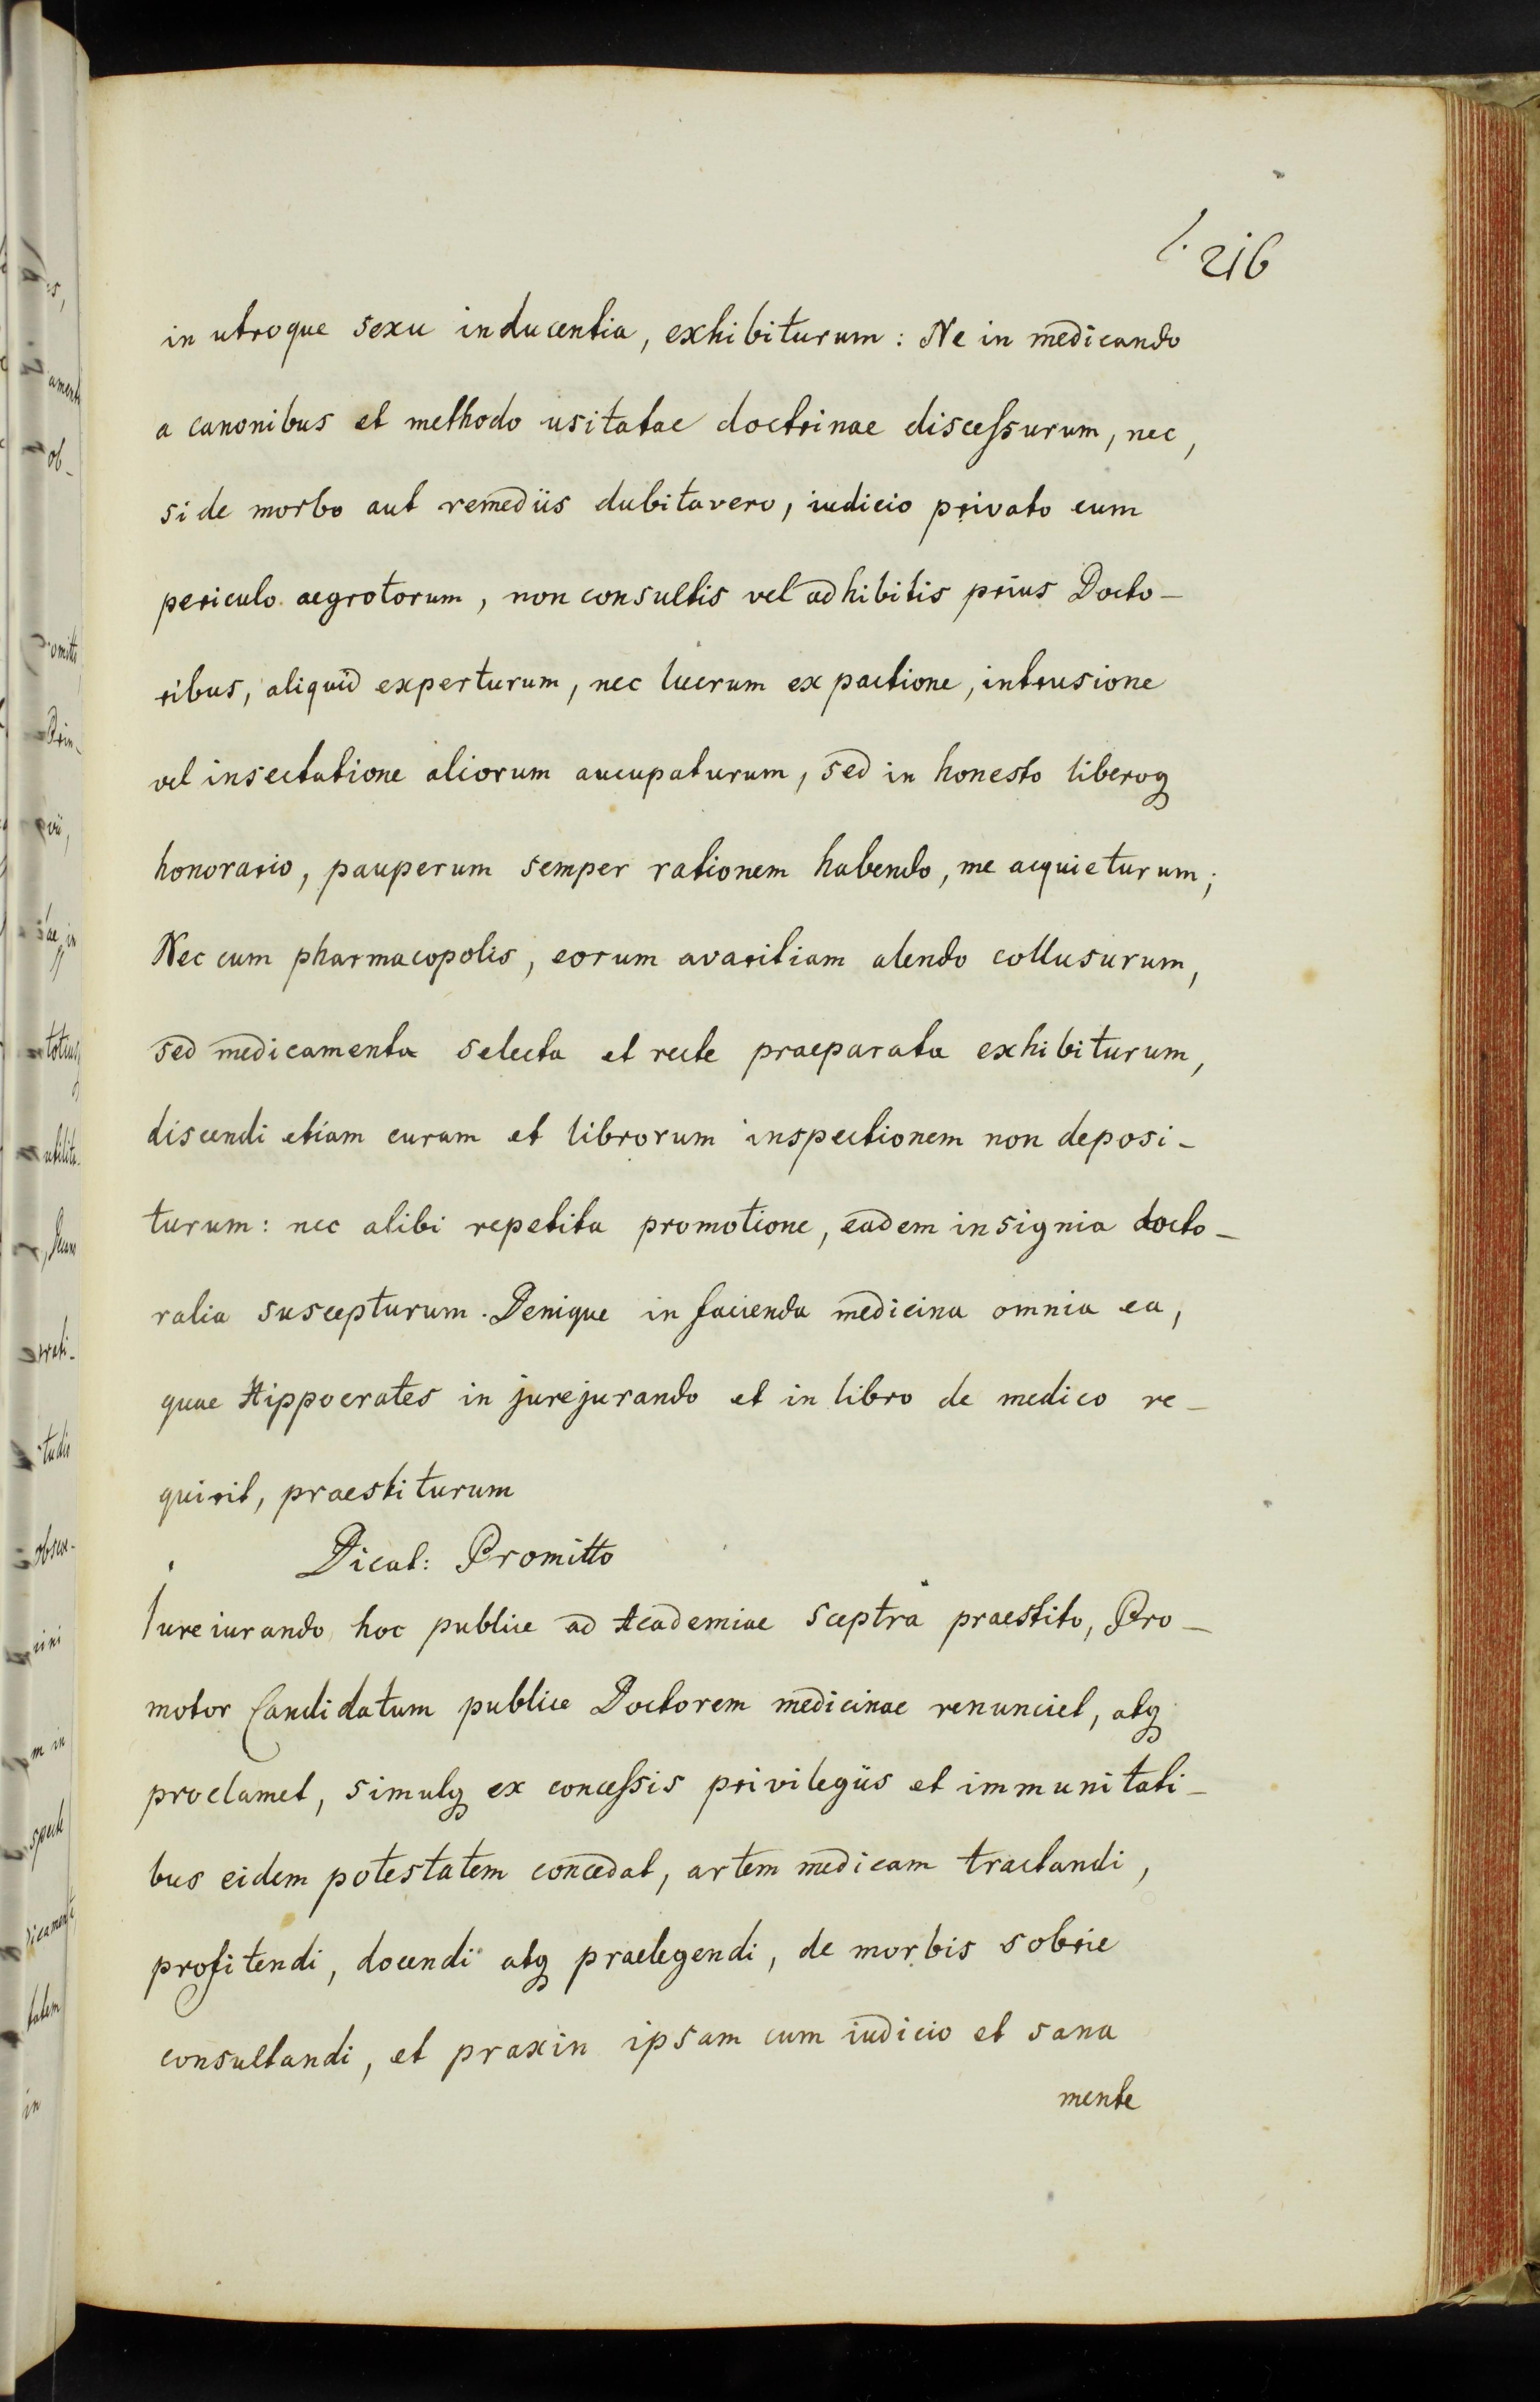 216
in utroque sexu inducentia, exhibiturum: Ne in medicando
a canonibus et methodo usitatae doctrinae disceſsurum, nec,
si de morbo aut remediis dubitavero, iudicio privato cum
periculo aegrotorum, non consultis vel adhibitis prius Docto-
ribus, aliquid experturum, nec lucrum ex pactione, intrusione
vel insectatione aliorum aucupaturum, sed in honesto liberoq
honorario, pauperum semper rationem habendo, me acquieturum;
Nec cum pharmacopolis, eorum avaritiam alendo collusurum,
sed medicamenta selecta et recte praeparata exhibiturum,
discendi etiam curam et librorum inspectionem non deposi-
turum: nec alibi repetita promotione, eadem insignia docto-
ralia suscepturum. Denique in facienda medicina omnia ea,
quae Hippocrates in jurejurando et in libro de medico re-
quirit, praestiturum
Dicat: Promitto
Iureiurando hoc publice ad Academiae sceptra praestito, Pro-
motor Candidatum publice Doctorem medicinae renunciet, atq
proclamet, simulq ex conceſsis privilegiis et immunitati-
bus eidem potestatem concedat, artem medicam tractandi,
profitendi, docendi atq praelegendi, de morbis sobrie
consultandi, et praxin ipsam cum iudicio et sana
mente